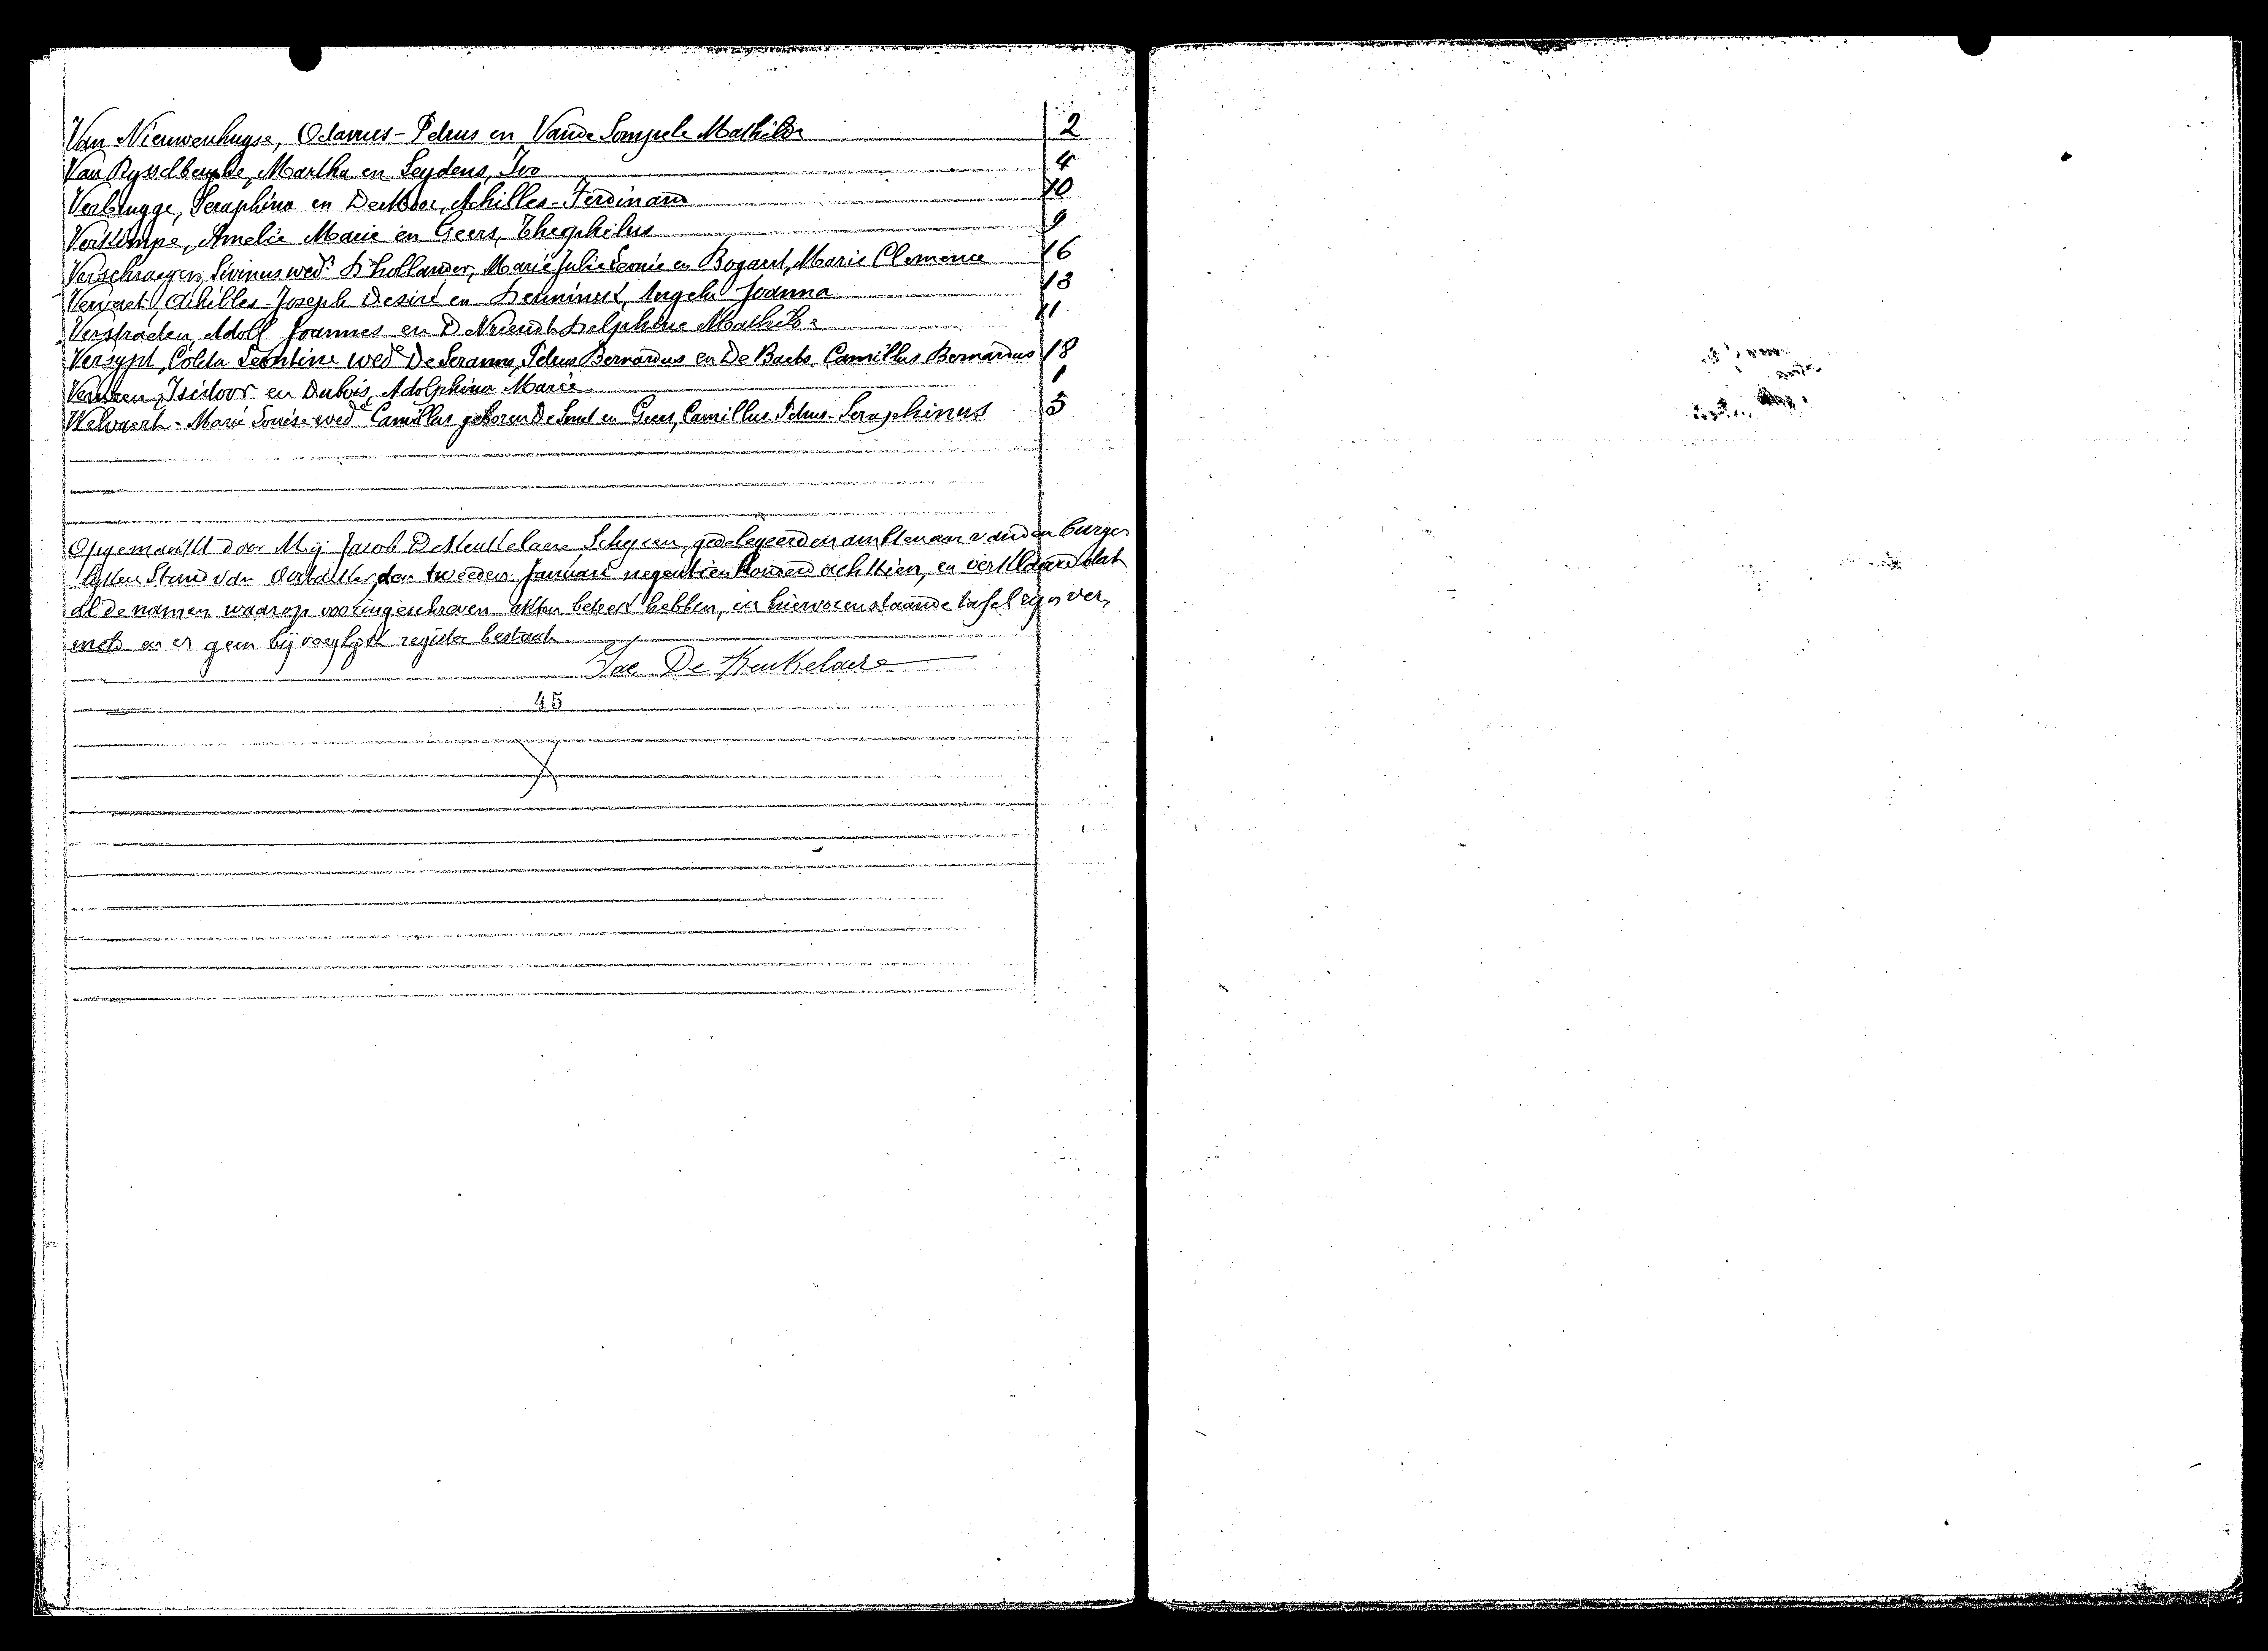 Van Nieuwenhuyse, Octavus-Petrus en Vande Sompele Mathilde 2
Van Rysselberghe, Martha en Leydens, Ivo 4
Verbrugge, Seraphina en De Moor, Achilles-Ferdinand 10
Verkimpe, Amelie Marie en Geers, Theophilus 9
Verschraegen, Livinus wedr D'hollander, Marie Julie Leonie en Bogaert, Marie Clemence 16
Vervaet Achilles-Joseph Desiré en Angela Joanna 13
Verstraeten, Adolf Joannes en De Vriendt Delphine Mathilde 11
Versypt, Coleta Leontine wede De Petrus Bernardus en De Baets, Camillus Bernardus 18
Isidoor en Dubois, Adolphina Marie 1
Welvaert-Marie Louise wede Camillus geboren De Smet en Geers, Camillus-Petrus-Seraphinus 5
Opgemaakt door Mij Jacob De Keukelaere Schepen, gedelegeerden ambtenaar van den burger
lijken Stand van Oostakker, den tweeden Januari negentien honderd achttien, en verklaard dat
al de namen waarop vooringeschreven akten betrek hebben, in hiervorenstaande tafel zijn ver,
meld en er geen bijvoeglijk register bestaat
Jac De Keukelaere
45